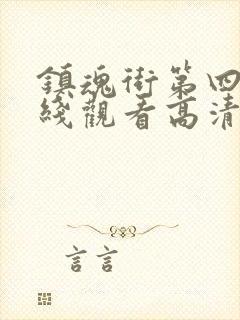 鎮魂街第四
綫觀看高清
言言